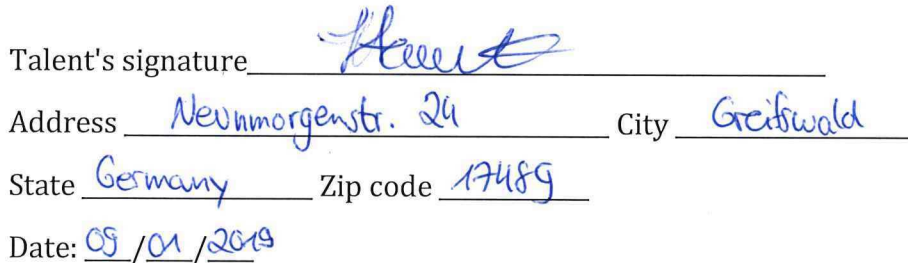 Talent's signature
Address Neunmorgenstr. 24 City Greifswald
State Germany Zip code 17489
Date: 09 / 01 / 2019